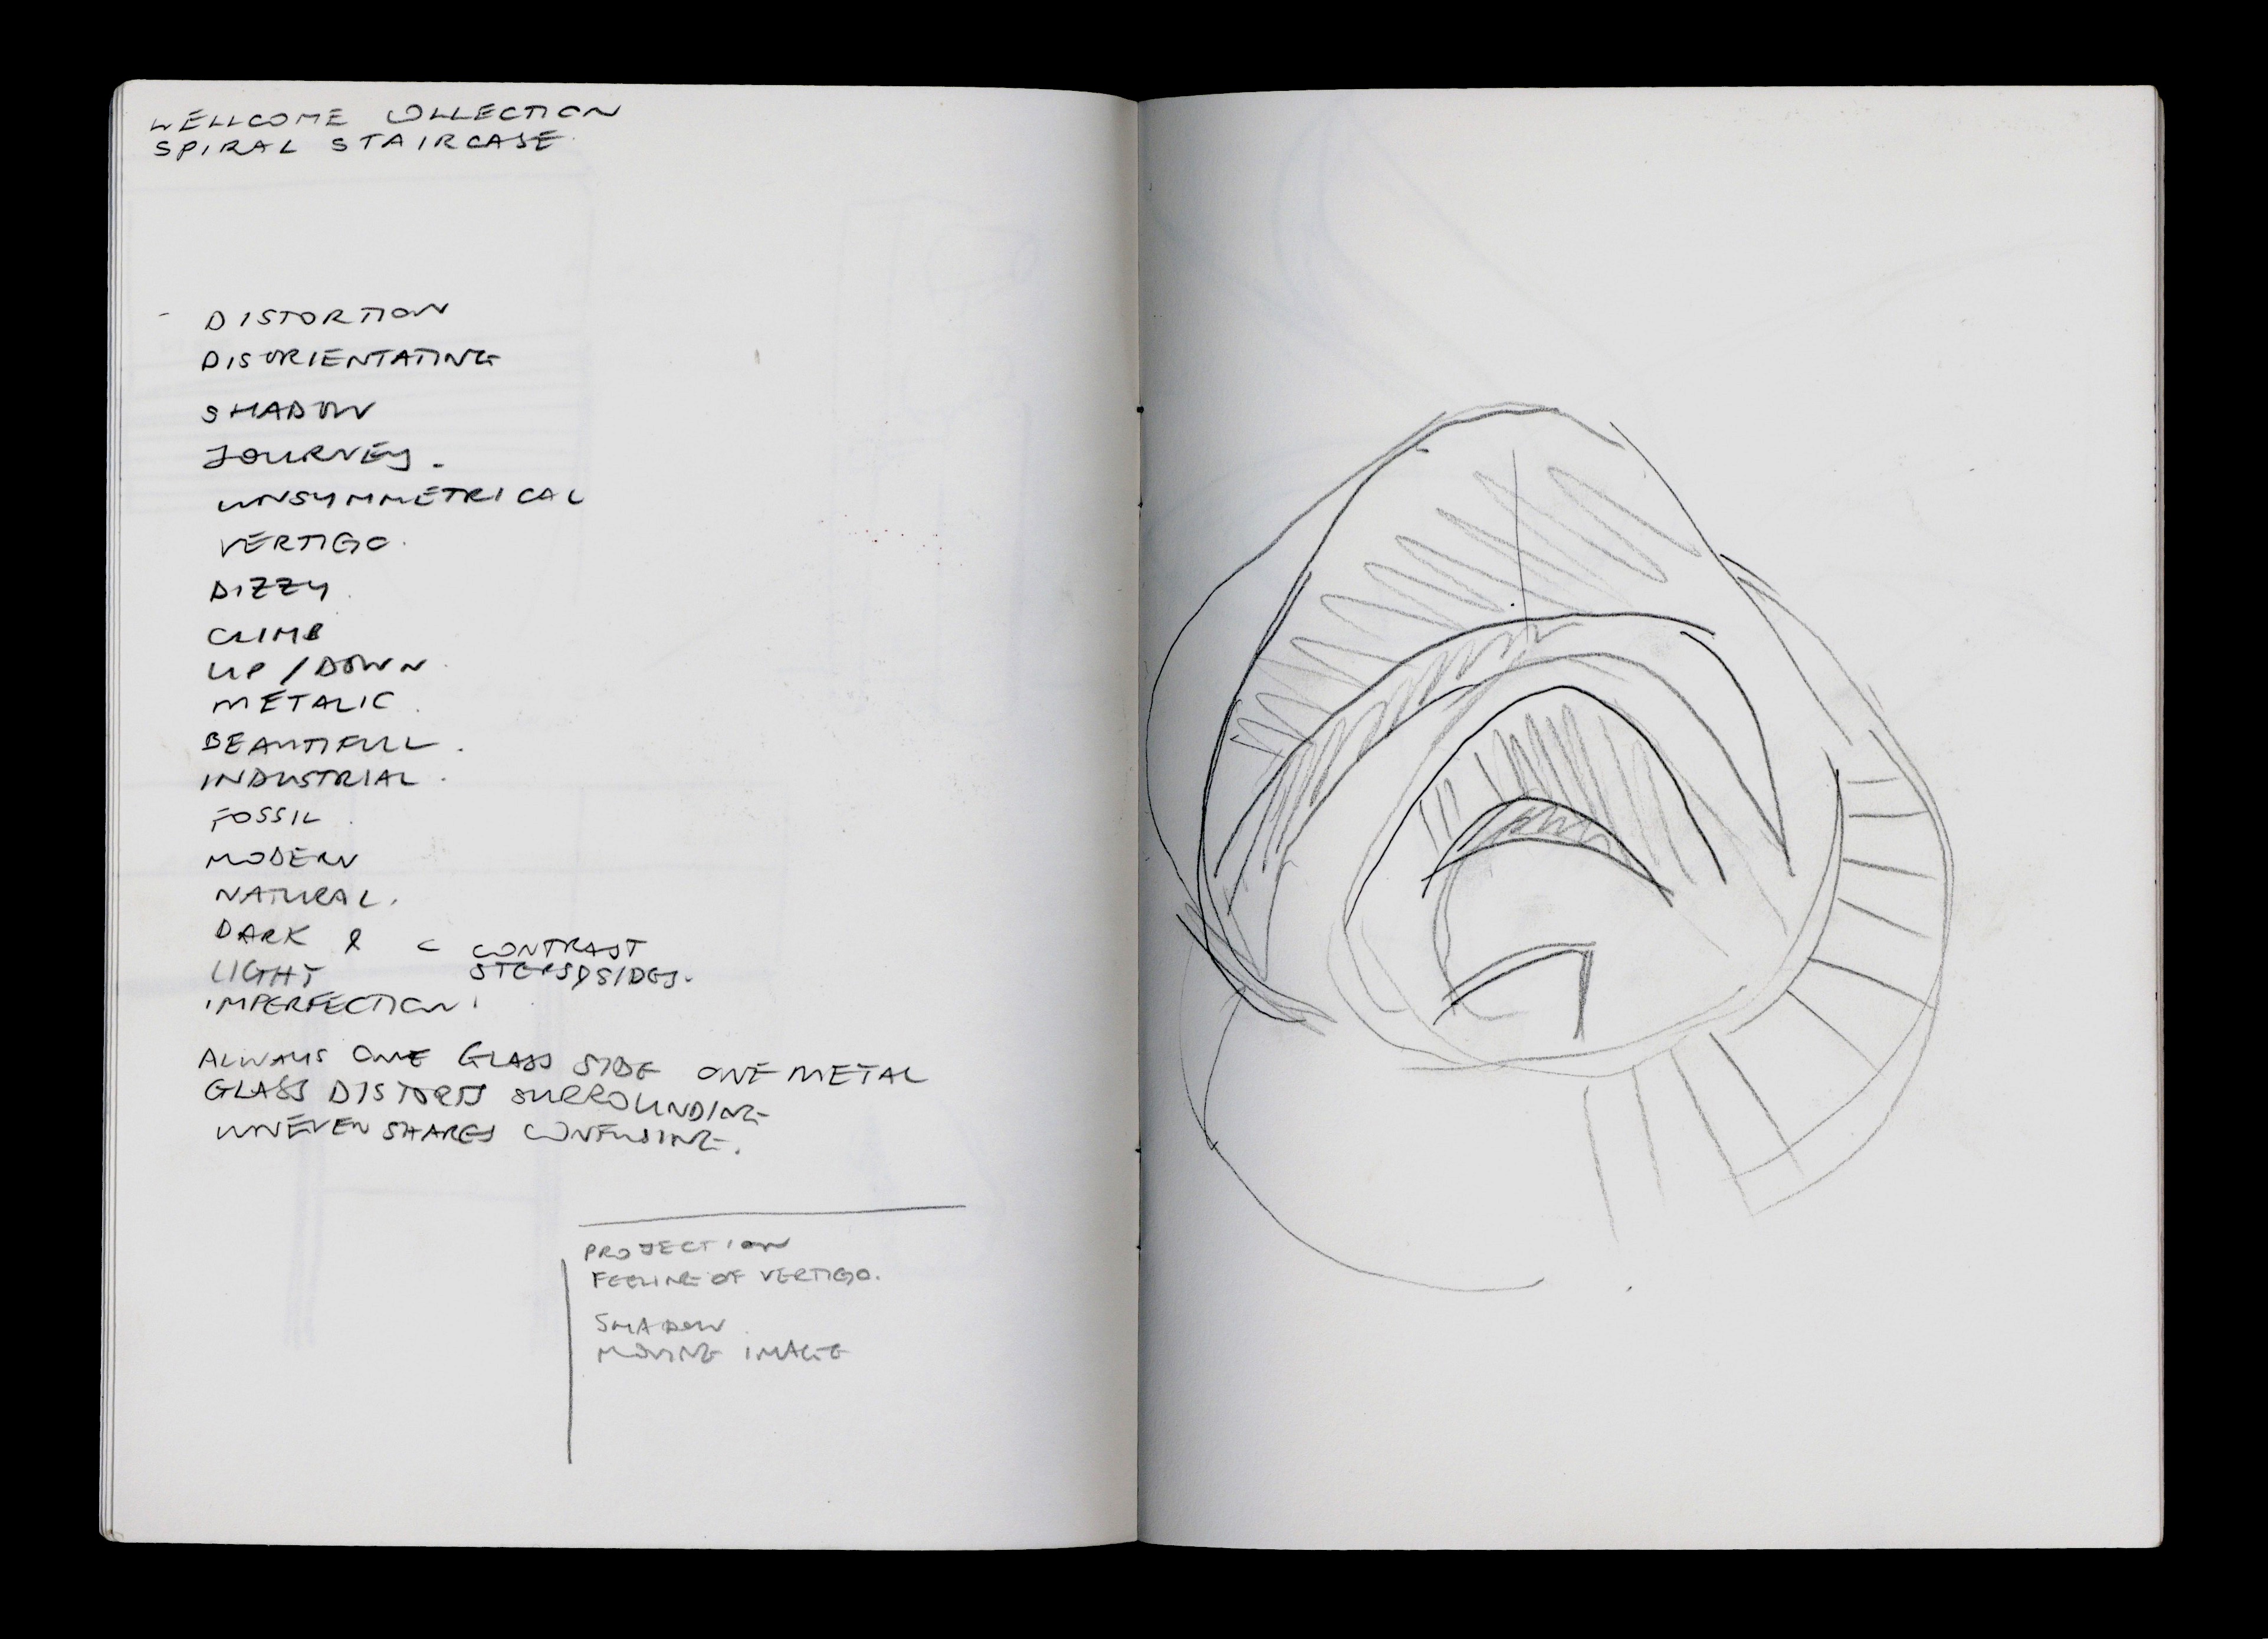 WELLCOME COLLECTION
SPIRAL STAIRCASE.
- DISTORTION
DISORIENTATING
SHADOW
JOURNEY.
UNSYMMETRICAL
VERTIGO.
DIZZY.
CLIMB
UP / DOWN.
METALIC.
BEAUTIFULL.
INDUSTRIAL.
FOSSIL.
MODERN
NATURAL.
DARK & C CONTRAST
LIGHT STEPS&SIDES.
IMPERFECTION.
ALWAYS ONE GLASS SIDE ONE METAL
GLASS DISTORTS SURROUNDING
UNEVEN SHAPES CONFUSING.
PROJECTION
FEELING OF VERTIGO.
SHADOW.
MOVING IMAGE